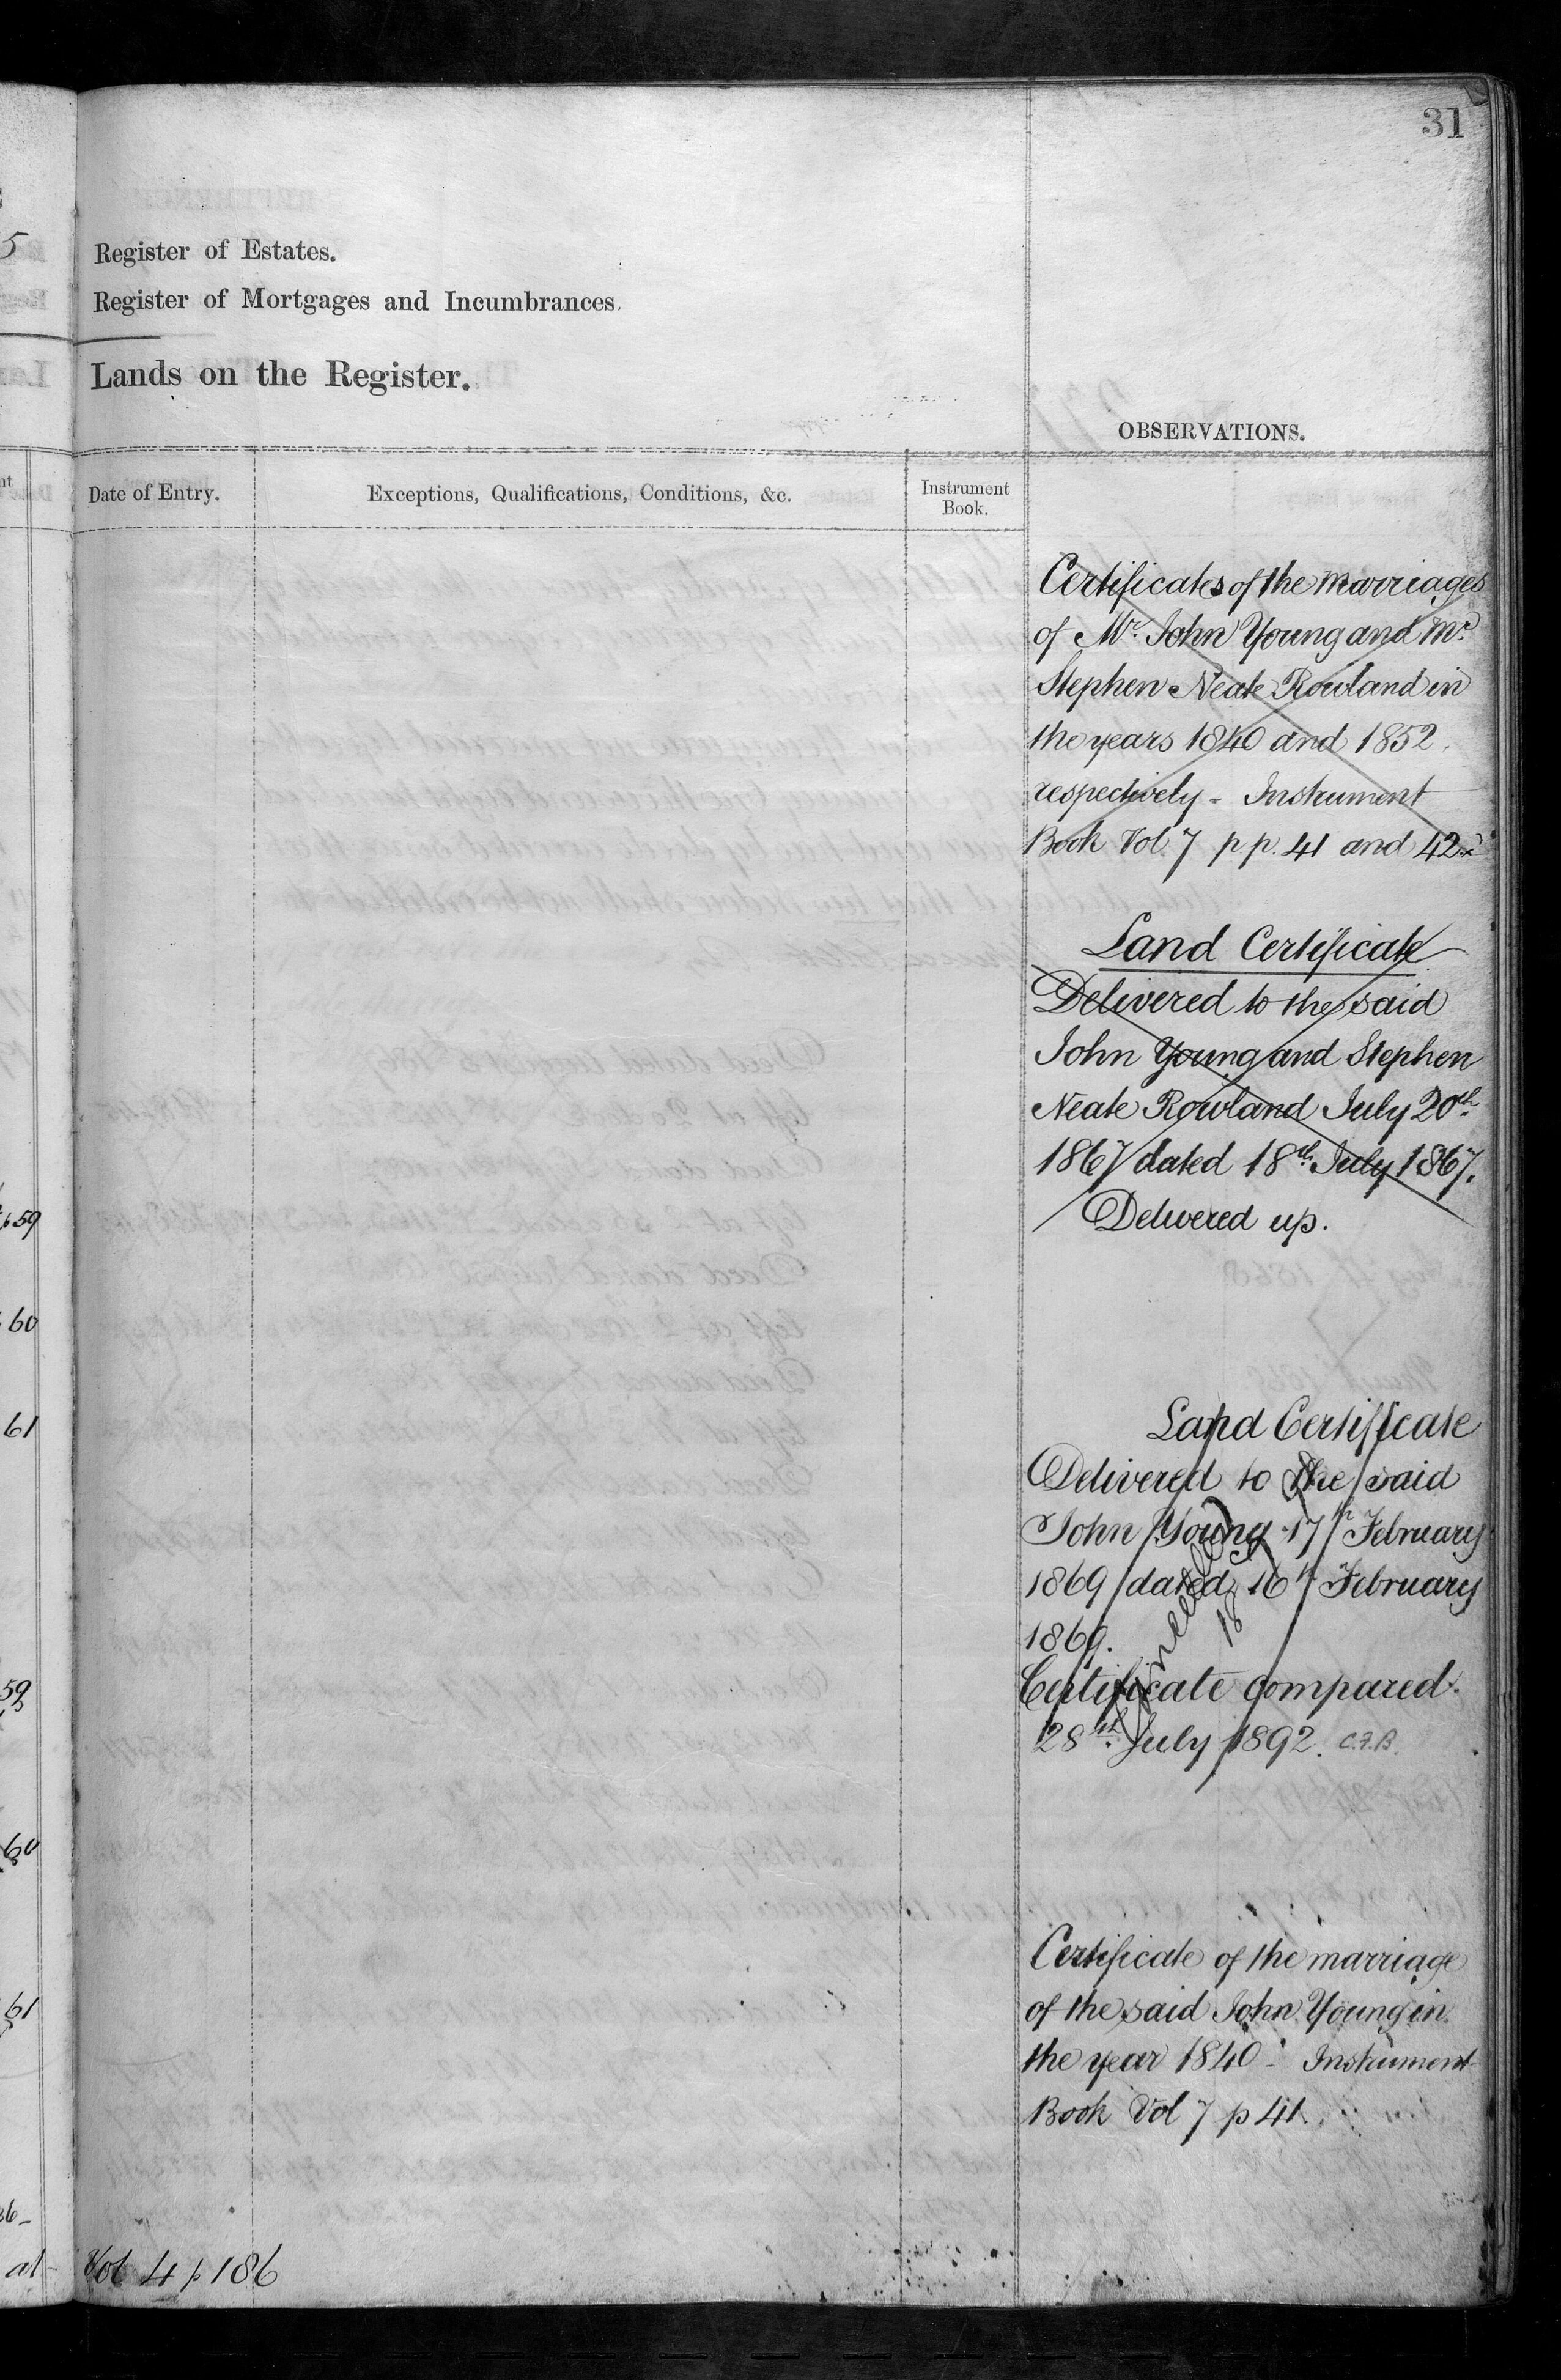 31
Register of Estates.
Register of Mortgages and Incumbrances.
Lands on the Register.
OBSERVATIONS.
Date of Entry.
Exceptions, Qualifications, Conditions, &c.
Instrument
Book.
Certificates of the marriages
of Mr. John Young and Mr.
Stephen Neate Rowland in
the years 1840 and 1852
respectively - Instrument
Book Vol. 7 p.p. 41 and 42
Land Certificate
Delivered to the said
John Young and Stephen
Neate Rowland July 20th
1867 dated 18th July 1867.
Delivered up.
Land Certificate
Delivered to the said
John Young 17th February
1869 dated 16th February
1869.
Cancelled
Certificate compared.
28th July 1892. C.F.B.
Certificate of the marriage
of the said John Young in
the year 1840 - Instrument
Book Vol 7 p 41.
Vol 4 p 186
5
p 59
60
61
59
60
61